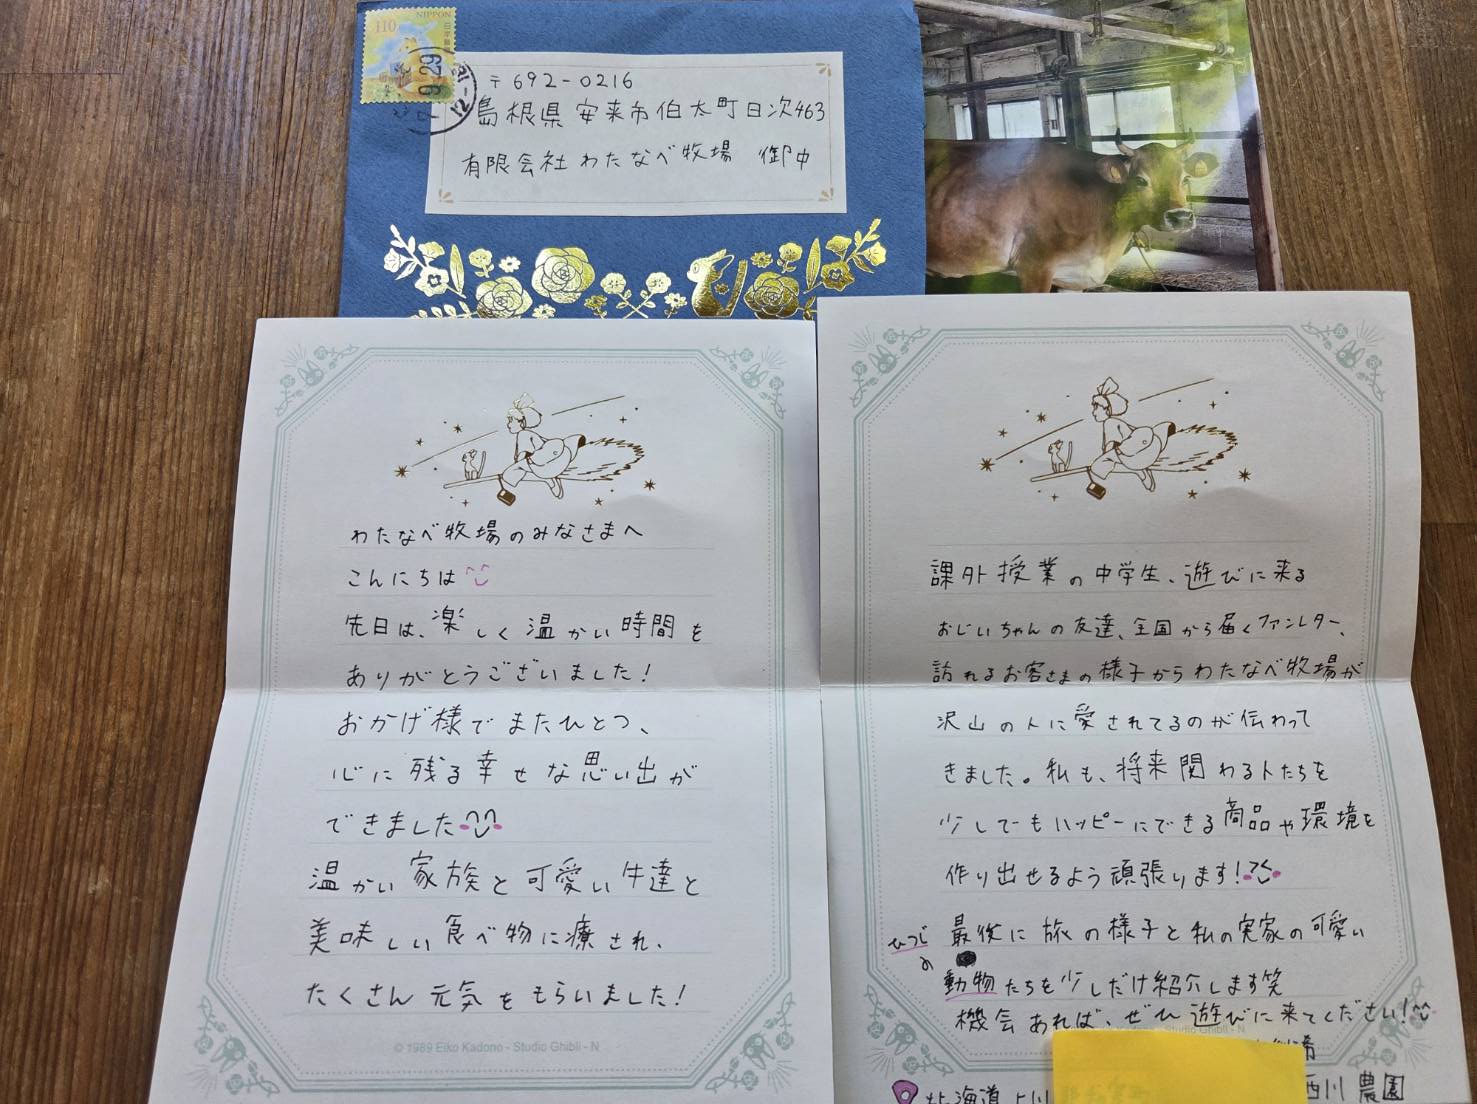 110
NIPPON
日本郵便
9.29
12-18
〒692-0216
島根県安来市伯太町日次463
有限会社わたなべ牧場 御中
わたなべ牧場のみなさまへ
こんにちは
先日は、楽しく温かい時間を
ありがとうございました!
おかげ様でまたひとつ、
心に残る幸せな思い出が
できました
温かい家族と可愛い牛達と
美味しい食べ物に療され、
たくさん元気をもらいました!
© 1989 Eiko Kadono - Studio Ghibli - N
課外授業の中学生、遊びに来る
おじいちゃんの友達、全国から届くファンレター、
訪れるお客さまの様子からわたなべ牧場が
沢山の人に愛されてるのが伝わって
きました。私も、将来関わる人たちを
少しでもハッピーにできる商品や環境を
作り出せるよう頑張ります!
最後に旅の様子と私の実家の可愛い
ひつじの
動物たちを少しだけ紹介します笑
機会あれば、ぜひ遊びに来てください!
Studio Ghibli - N
北海道上川
西川農園